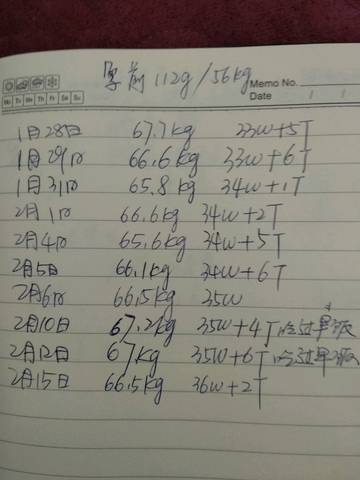 孕前 112g/56kg
Memo No.
Mo Tu We Th Fr Sa Su
Date / /
1月28日 67.7kg 33W+5T
1月29日 66.6kg 33W+6T
1月31日 65.8kg 34W+1T
2月1日 66.6kg 34W+2T
2月4日 65.6kg 34W+5T
2月5日 66.1kg 34W+6T
2月6日 66.5kg 35W
2月10日 67.2kg 35W+4T 吃过早饭
2月12日 67kg 35W+6T 吃过早饭
2月15日 66.5kg 36W+2T